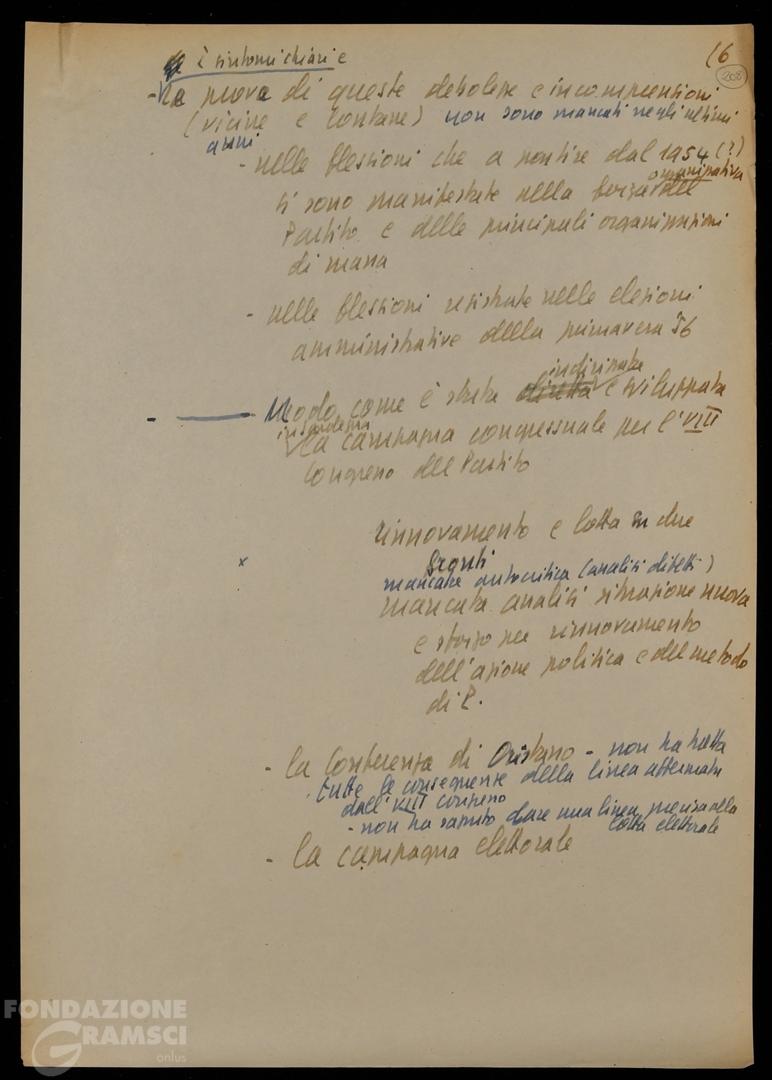 i sintomi chiari e
16
208
- La prova di queste debolezze e incomprensioni
(vicine e lontane) non sono mancati negli ultimi
anni
- nelle flessioni che a partire dal 1954 (?)
organizzativa
si sono manifestate nella forza del
Partito e delle principali organizzazioni
di massa
- nelle flessioni registrate nelle elezioni
amministrative della primavera 56
indirizzata
- Modo come è stata diretta e sviluppata
in Sardegna
la campagna congressuale per l'VIII
Congresso del Partito
rinnovamento e lotta su due
fronti
x
mancata autocritica (analisi difetti)
mancata analisi situazione nuova
e sforzo per rinnovamento
dell'azione politica e del metodo
di P.
- la Conferenza di Oristano - non ha tratto
tutte le conseguenze della linea affermata
dall'VIII congresso
- non ha saputo dare una linea precisa alla
lotta elettorale
- la campagna elettorale
FONDAZIONE
GRAMSCI
onlus